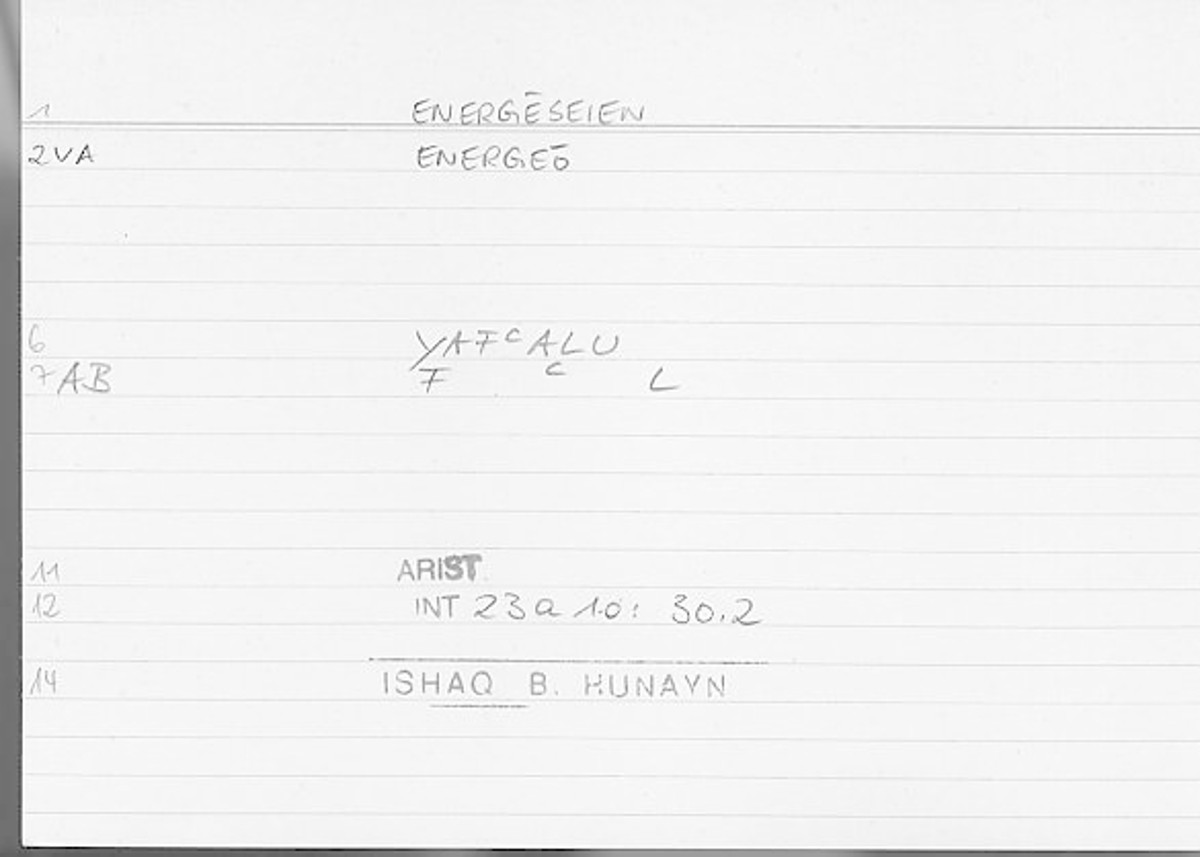 1 ENERGĒSEIEN
2VA ENERGEŌ
6 YAFᶜALU
7AB F ᶜ L
11 ARIST.
12 INT 23a10: 30.2
14 ISHAQ B. HUNAYN